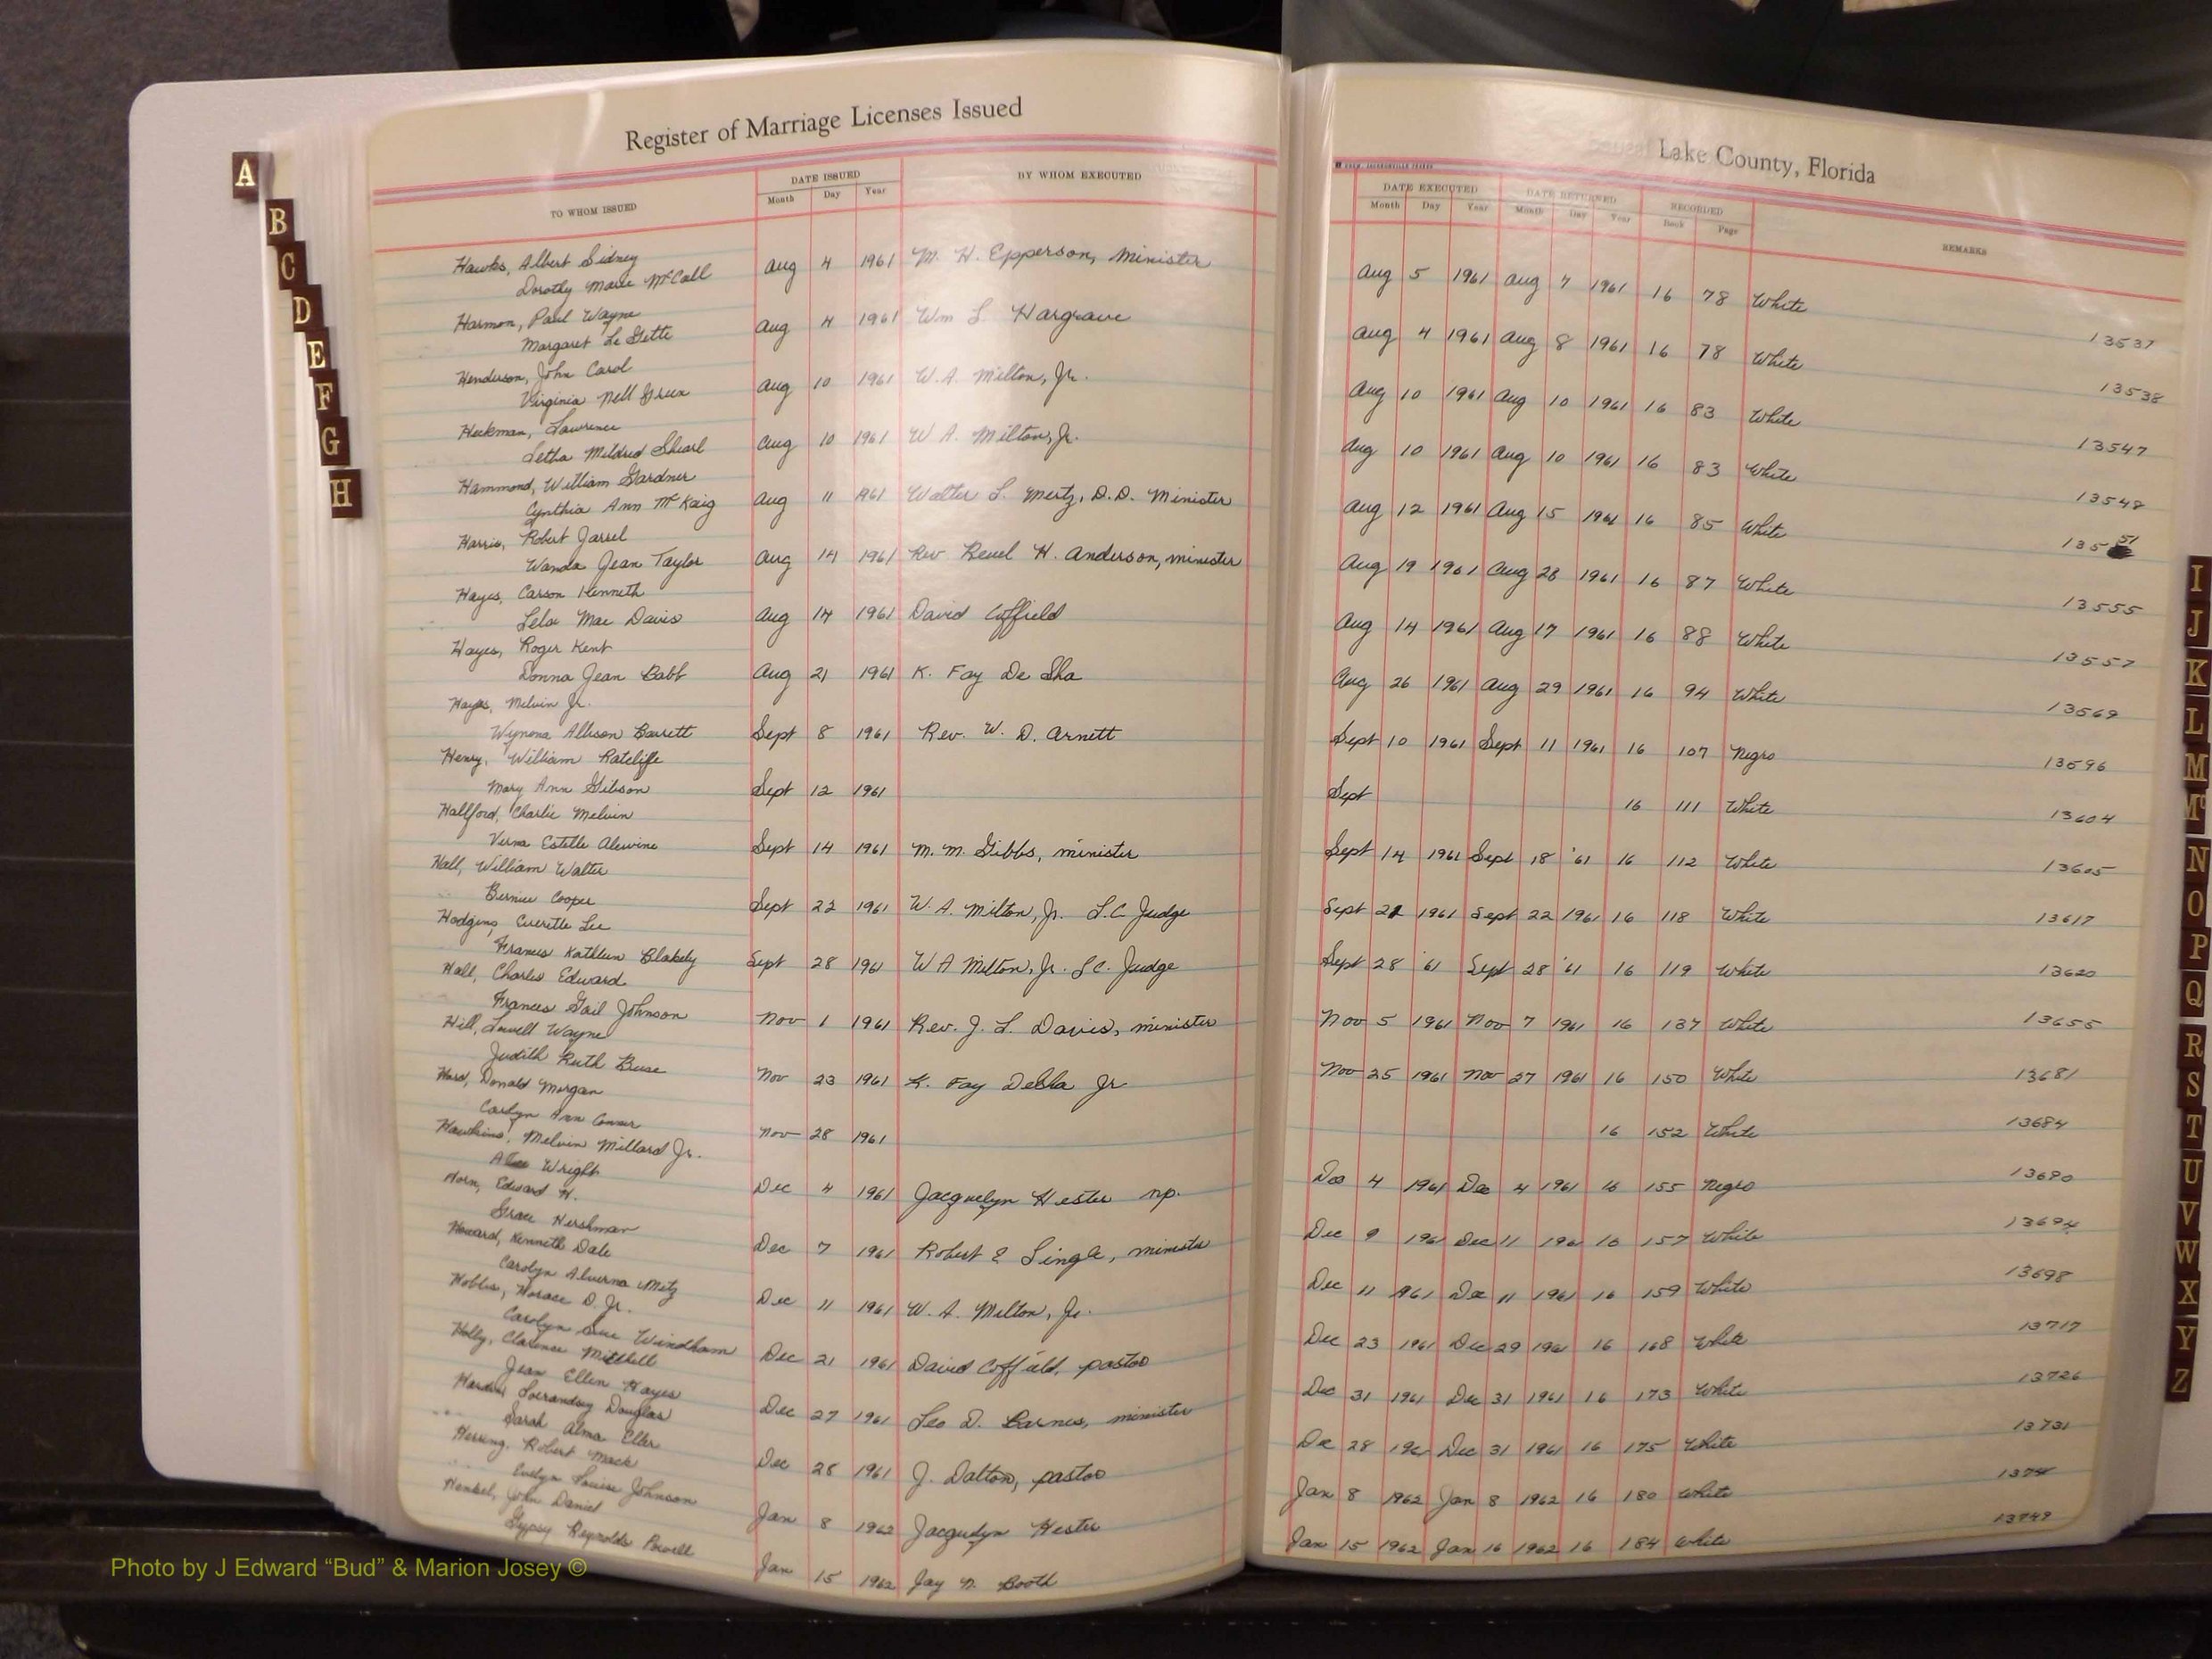 Register of Marriage Licenses Issued
TO WHOM ISSUED
DATE ISSUED
Month Day Year
BY WHOM EXECUTED
Hawks, Albert Sidney
Dorothy Marie McCall Aug 4 1961 M. H. Epperson, Minister
Harmon, Paul Wayne
Margaret Le Gette Aug 4 1961 Wm L. Hargrave
Henderson, John Carol
Virginia Nell Aug 10 1961 W. A. Milton, Jr.
Heckman, Lawrence
Letha Mildred Aug 10 1961 W. A. Milton, Jr.
Hammond, William Gardner
Cynthia Ann McKaig Aug 11 1961 Walter L. Mertz, D.D. Minister
Harris, Robert Jarrel
Wanda Jean Taylor Aug 14 1961 Rev Reuel H. Anderson, minister
Hayes, Carson Kenneth
Lela Mae Davis Aug 14 1961 David Coffield
Hayes, Roger Kent
Donna Jean Babb Aug 21 1961 K. Fay De Sha
Hayes, Melvin Jr.
Wynona Allison Barrett Sept 8 1961 Rev. W. D. Arnett
Henry, William Ratcliffe
Mary Ann Gibson Sept 12 1961
Hallford, Charlie Melvin
Verna Estelle Alewine Sept 14 1961 M. M. Gibbs, minister
Hall, William Walter
Bernice Cooper Sept 22 1961 W. A. Milton, Jr. L.C. Judge
Hodgins, Everette Lee
Frances Kathleen Blakely Sept 28 1961 W A Milton, Jr. L.C. Judge
Hall, Charles Edward
Frances Gail Johnson Nov 1 1961 Rev. J. L. Davis, minister
Hill, Lowell Wayne
Judith Ruth Nov 23 1961 K. Fay DeSha Jr
Donald Morgan
Carolyn Ann Conner Nov 28 1961
Hawkins, Melvin Millard Jr.
Wright Dec 4 1961 Jacquelyn Hester np.
Horn, Edward H.
Grace Hershman Dec 7 1961 Robert E Single, minister
Howard, Kenneth Dale
Carolyn Alverna Metz Dec 11 1961 W. A. Milton, Jr.
Hobbs, Horace D. Jr.
Carolyn Sue Windham Dec 21 1961 David Coffield, pastor
Holly, Clarence Mitchell
Jean Ellen Hayes Dec 27 1961 Leo D. Barnes, minister
Douglas
Sarah Alma Eller Dec 28 1961 J. Dalton, pastor
Herring, Robert Mack
Evelyn Louise Johnson Jan 8 1962 Jacquelyn Hester
Henkel, John Daniel
Gypsy Reynolds Powell Jan 15 1962 Jay N. Booth
Lake County, Florida
DATE EXECUTED DATE RETURNED RECORDED
Month Day Year Month Day Year Book Page
REMARKS
Aug 5 1961 Aug 7 1961 16 78 White 13537
Aug 4 1961 Aug 8 1961 16 78 White 13538
Aug 10 1961 Aug 10 1961 16 83 White 13547
Aug 10 1961 Aug 10 1961 16 83 White 13548
Aug 12 1961 Aug 15 1961 16 85 White 13551
Aug 19 1961 Aug 28 1961 16 87 White 13555
Aug 14 1961 Aug 17 1961 16 88 White 13557
Aug 26 1961 Aug 29 1961 16 94 White 13569
Sept 10 1961 Sept 11 1961 16 107 Negro 13596
Sept 16 111 White 13604
Sept 14 1961 Sept 18 '61 16 112 White 13605
Sept 1961 Sept 22 1961 16 118 White 13617
Sept 28 '61 Sept 28 '61 16 119 White 13620
Nov 5 1961 Nov 7 1961 16 137 White 13655
Nov 25 1961 Nov 27 1961 16 150 White 13681
16 152 White 13684
Dec 4 1961 Dec 4 1961 16 155 Negro 13690
Dec 9 1961 Dec 11 1961 16 157 White 13694
Dec 11 1961 Dec 11 1961 16 159 White 13698
Dec 23 1961 Dec 29 1961 16 168 White 13717
Dec 31 1961 Dec 31 1961 16 173 White 13726
Dec 28 Dec 31 1961 16 175 White 13731
Jan 8 1962 Jan 8 1962 16 180 White
Jan 15 1962 Jan 16 1962 16 184 White 13749
A
B
C
D
E
F
G
H
I
J
K
L
M
Mc
N
O
P
Q
R
S
T
U
V
W
X
Y
Z
Photo by J Edward “Bud” & Marion Josey ©